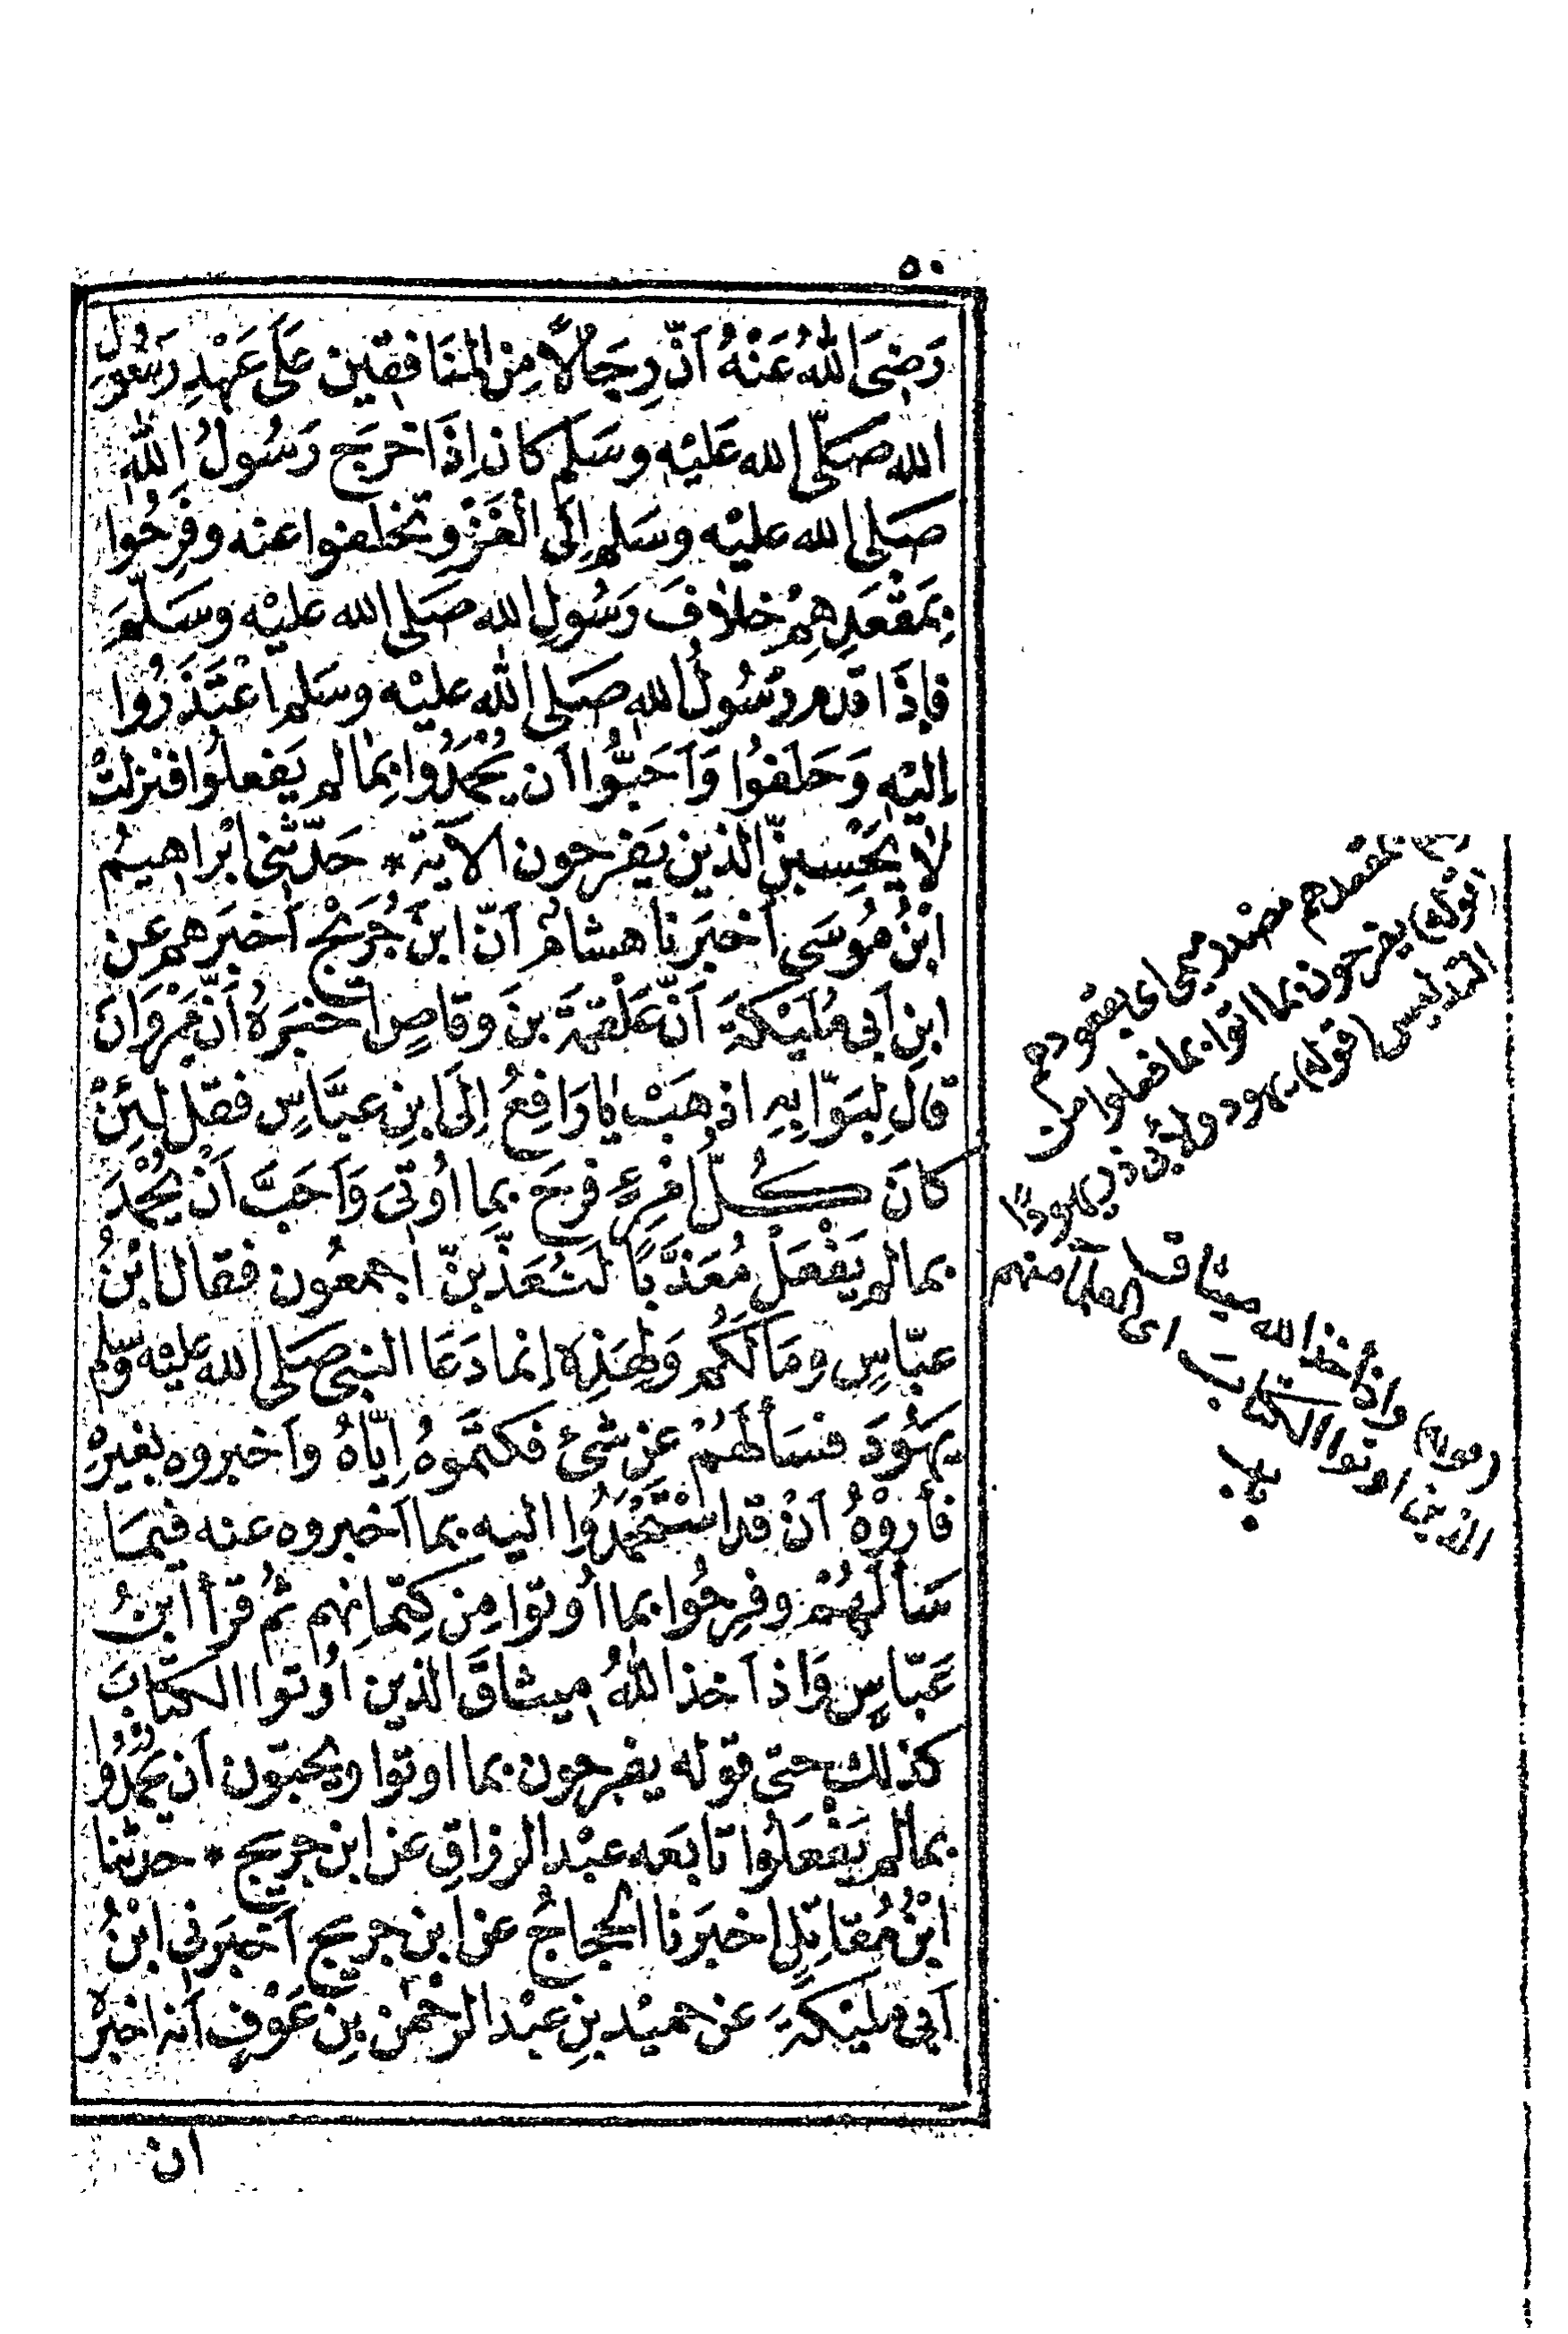 ٥٠
رَضِيَ اللهُ عَنْهُ أَنّ رِجَالاً مِنَ المنَافِقِين عَلَى عَهْدِ رَسُولِ
الله صَلّى الله عَلَيْه وسَلم كان إِذَا خرَج رَسُولُ اللهِ
صَلى الله عليْه وسَلم إِلَى الْغَزْو تخلفوا عنه وفَرِحُوا
بِمَقْعَدِهِمْ خلاَفَ رَسُولِ الله صَلى الله عليْه وسَلّمَ
فإِذَا قدم رسُولُ الله صَلى الله عليْه وسَلم اعْتَذَرُوا
إليْهِ وَحَلَفُوا وَأَحَبُّوا أن يُحْمَدُوا بِمَا لم يَفعلوُا فنزلتْ
لاَ يَحْسِبنّ الذين يَفرحون الآية * حَدّثنى ابْراهيمُ
ابْنُ مُوسَى أخبَرنَا هشامٌ أنّ ابنَ جُرَيْجٍ أخبَرهم عن
ابنِ أبي مُلَيْكَةَ أنّ عَلْقمَةَ بنَ وَقاصٍ أخبَرَهُ أنّ مَرْوَانَ
قالَ لِبَوّابِهِ اذهَبْ يَا رَافِعُ إِلَى ابنِ عبَّاسٍ فقل لئِنْ
كانَ كُلّ امْرِئٍ فرِحَ بما أُوتِيَ وَأحَبَّ أنْ يُحْمَدَ
بما لم يَفْعَلْ مُعَذَّبًا لَنُعَذّبنّ أجمعُون فقال ابْنُ
عبّاسٍ ومَا لَكُم وَلِهَذِهِ إنما دَعَا النبى صَلى الله عليْه وسلم
يَهُودَ فسَألَهُمْ عن شَئٍ فكتَمُوهُ إيّاهُ وأخبروه بغيرِهْ
فأرَوْهُ أنْ قد اسْتَحْمَدُوا اليه بما أخبروه عنه فيمَا
سَألَهُمْ وفرِحُوا بما أُوتوا مِن كِتمانِهم ثمُ قرأ ابنُ
عَبّاسٍ وَإذ أخذ اللهُ ميثاقَ الذين أُوتوا الكتابَ
كذلك حتى قوله يفرحون بما اوتوا ويحبون أن يُحْمَدُوا
بما لم يَفْعَلُوا تابَعه عبْد الرزاقِ عن ابن جريج * حدثنا
ابْنُ مُقَاتِلٍ اخبَرَنا الحجاجُ عن ابن جريج أخبَرَنى ابْنُ
أبي مليْكَةَ عن حميْد بنِ عبْد الرحْمٰن بنِ عَوْفٍ أنه اخبَرهُ
ان
بمقعدهم مصدر ميمى اى بقعودهم
(قوله) يفرحون بما اتوا بما فعلوا من
التدليس (قوله) يهود ولابى ذر يهودًا
(قوله) واذ أخذ الله ميثاق
الذين اوتوا الكتاب اى العلماء منهم